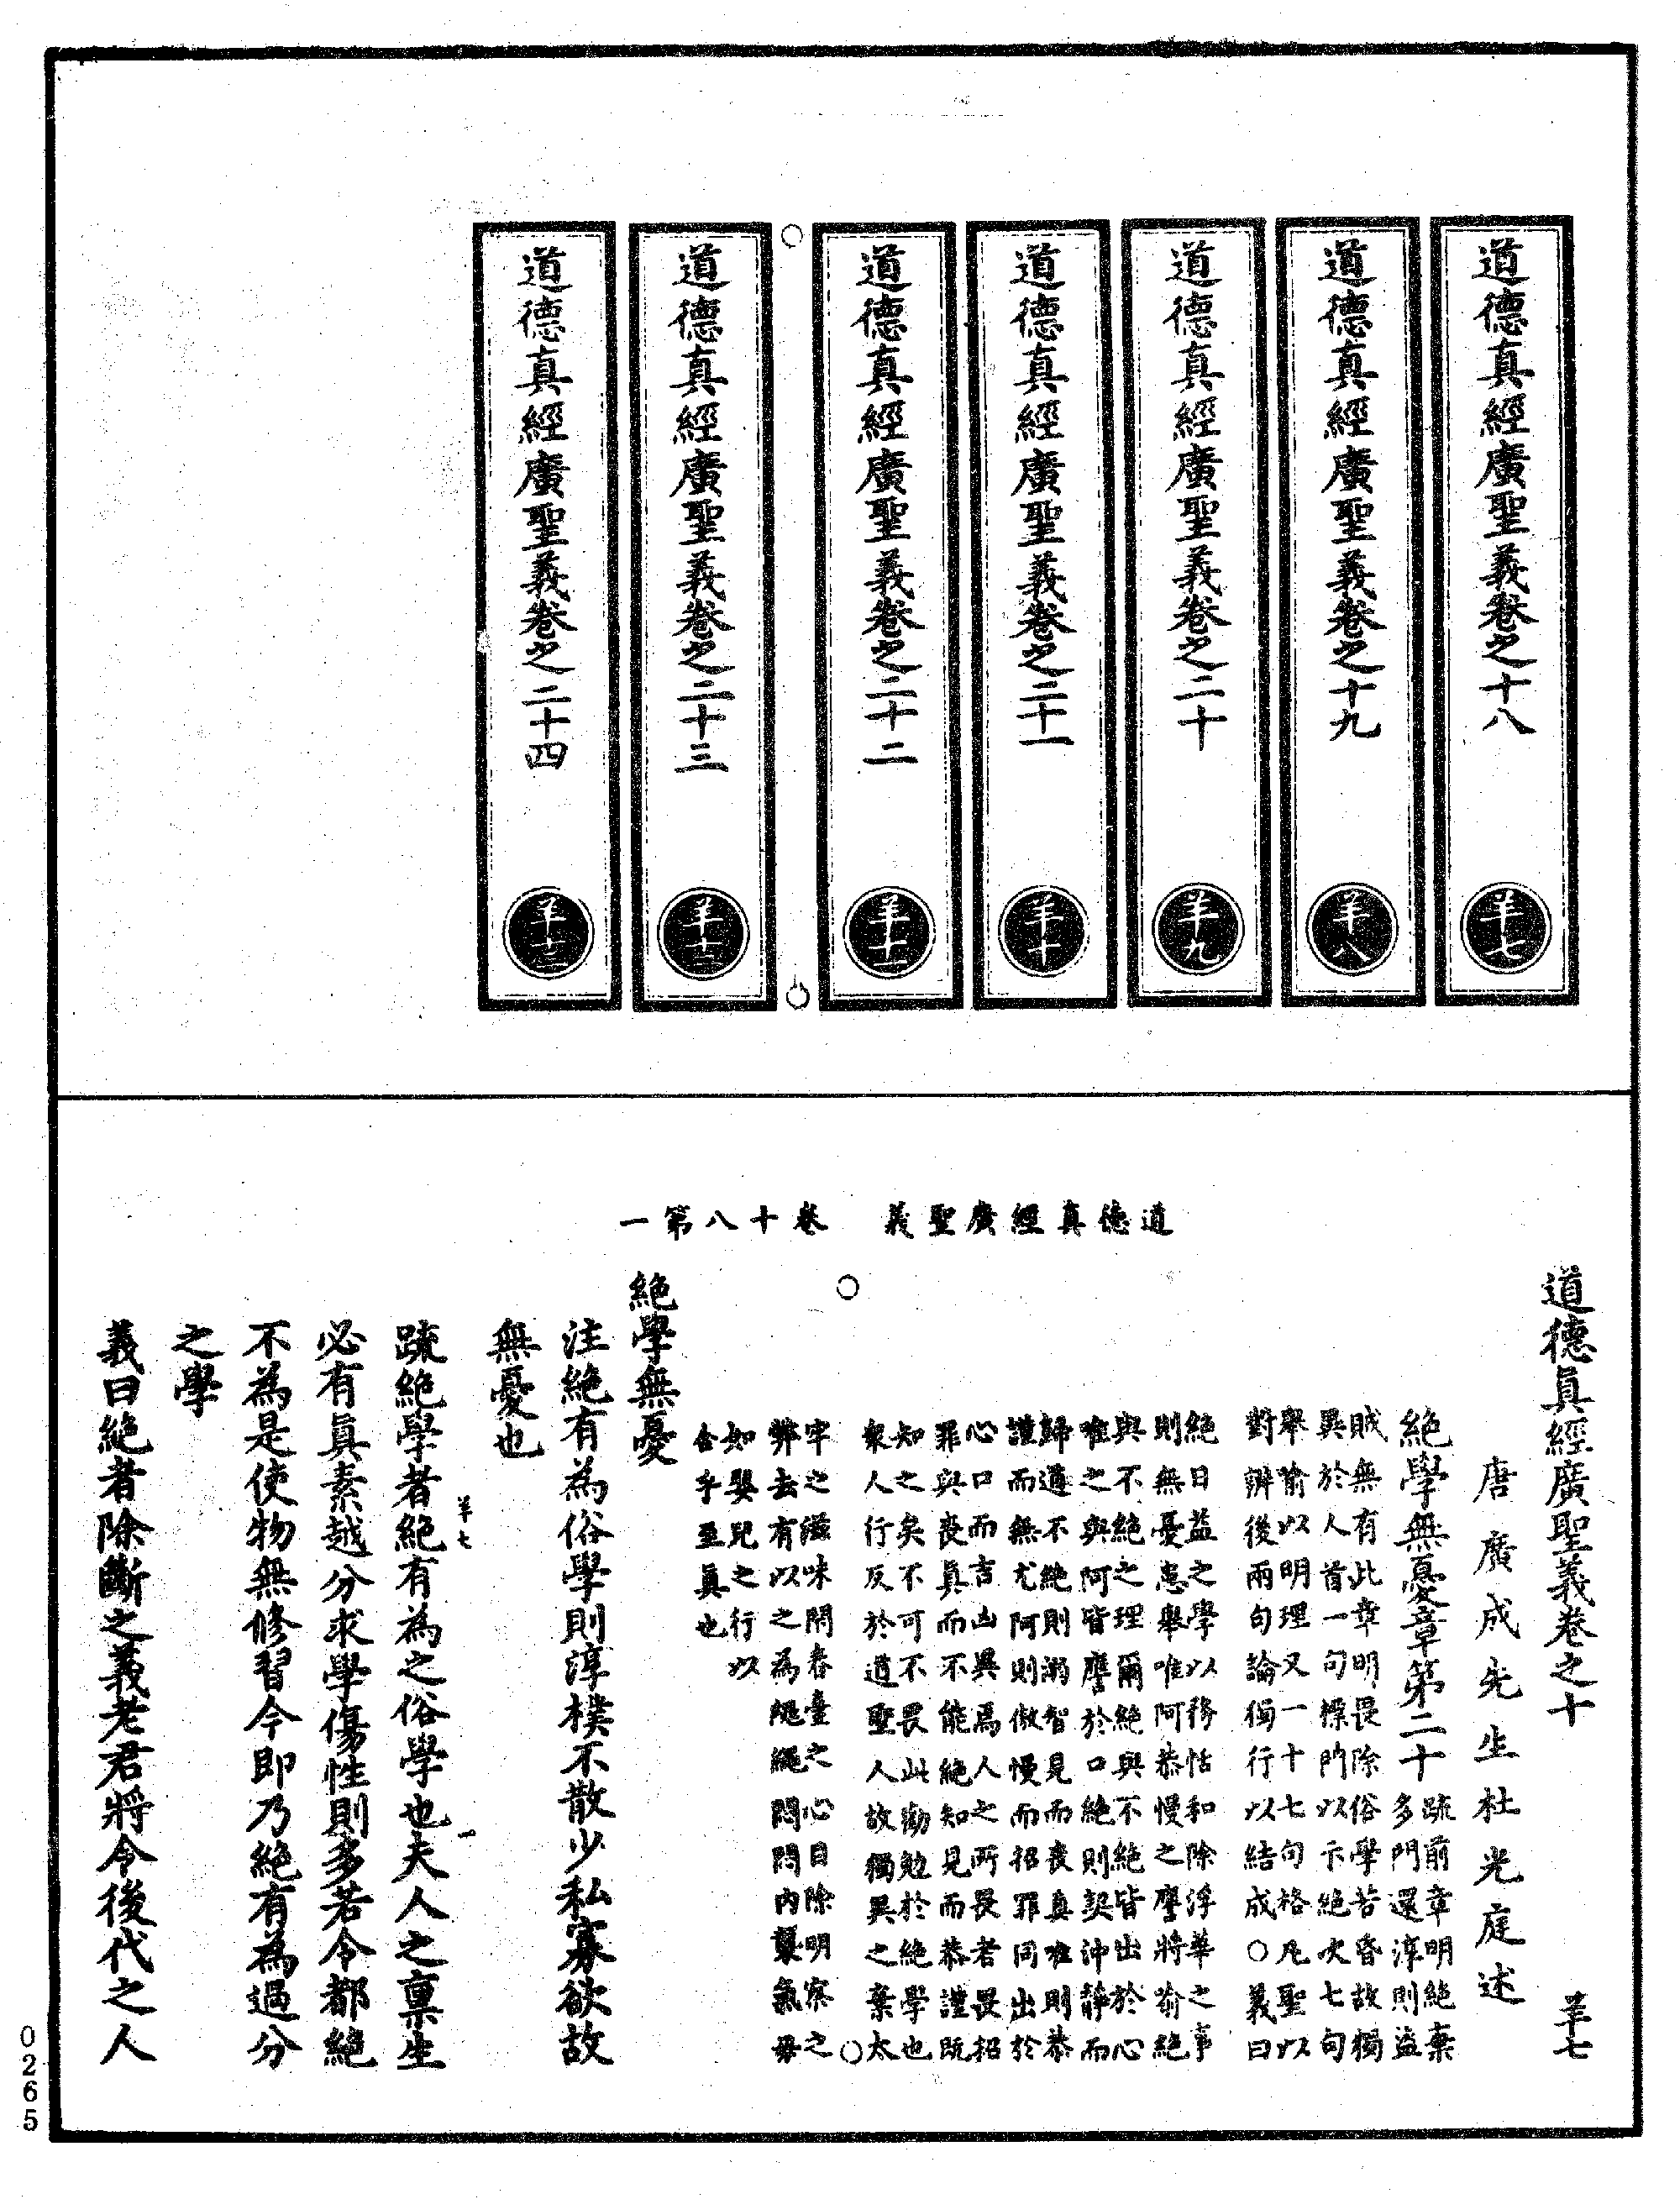 道德真經廣聖義卷之十八
羊七
道德真經廣聖義卷之十九
羊八
道德真經廣聖義卷之二十
羊九
道德真經廣聖義卷之二十一
羊十
道德真經廣聖義卷之二十二
羊十一
道德真經廣聖義卷之二十三
羊十二
道德真經廣聖義卷之二十四
羊十三
道德真經廣聖義　卷十八第一
道德眞經廣聖義卷之十　羊七
唐廣成先生杜光庭述
絕學無憂章第二十
疏前章明絕棄
多門還淳則盜
賊無有此章明畏除俗學若昏故獨
異於人首一句標門以示絕次七句
舉喻以明理又一十七句格凡聖以
對辯後兩句論獨行以結成○義曰
絕日益之學以務恬和除浮華之事
則無憂患舉唯阿恭慢之譍將喻絕
與不絕之理爾絕與不絕皆出於心
唯之與阿皆譍於口絕則契沖靜而
歸道不絕則溺智見而喪真唯則恭
謹而無尤阿則傲慢而招罪同出於
心口而吉凶異為人之所畏者畏招
罪與喪真而不能絕知見而恭謹既
知之矣不可不畏此勸勉於絕學也
衆人行反於道聖人故獨異之棄太
牢之滋味閉春臺之心目除明察之
弊去有以之為繩悶悶內襲氣母
如嬰兒之行以
含孚至眞也
絕學無憂
注絕有為俗學則淳樸不散少私寡欲故
無憂也
疏絕學者絕有為之俗學也夫人之稟生
羊七　一
必有眞素越分求學傷性則多若令都絕
不為是使物無修習今即乃絕有為過分
之學
義曰絕者除斷之義老君將令後代之人
0265